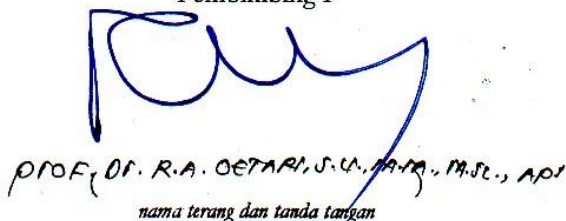 Pembimbing I
Prof. Dr. R.A. OETARI, S.U., M.M., M.Sc., Apt
nama terang dan tanda tangan